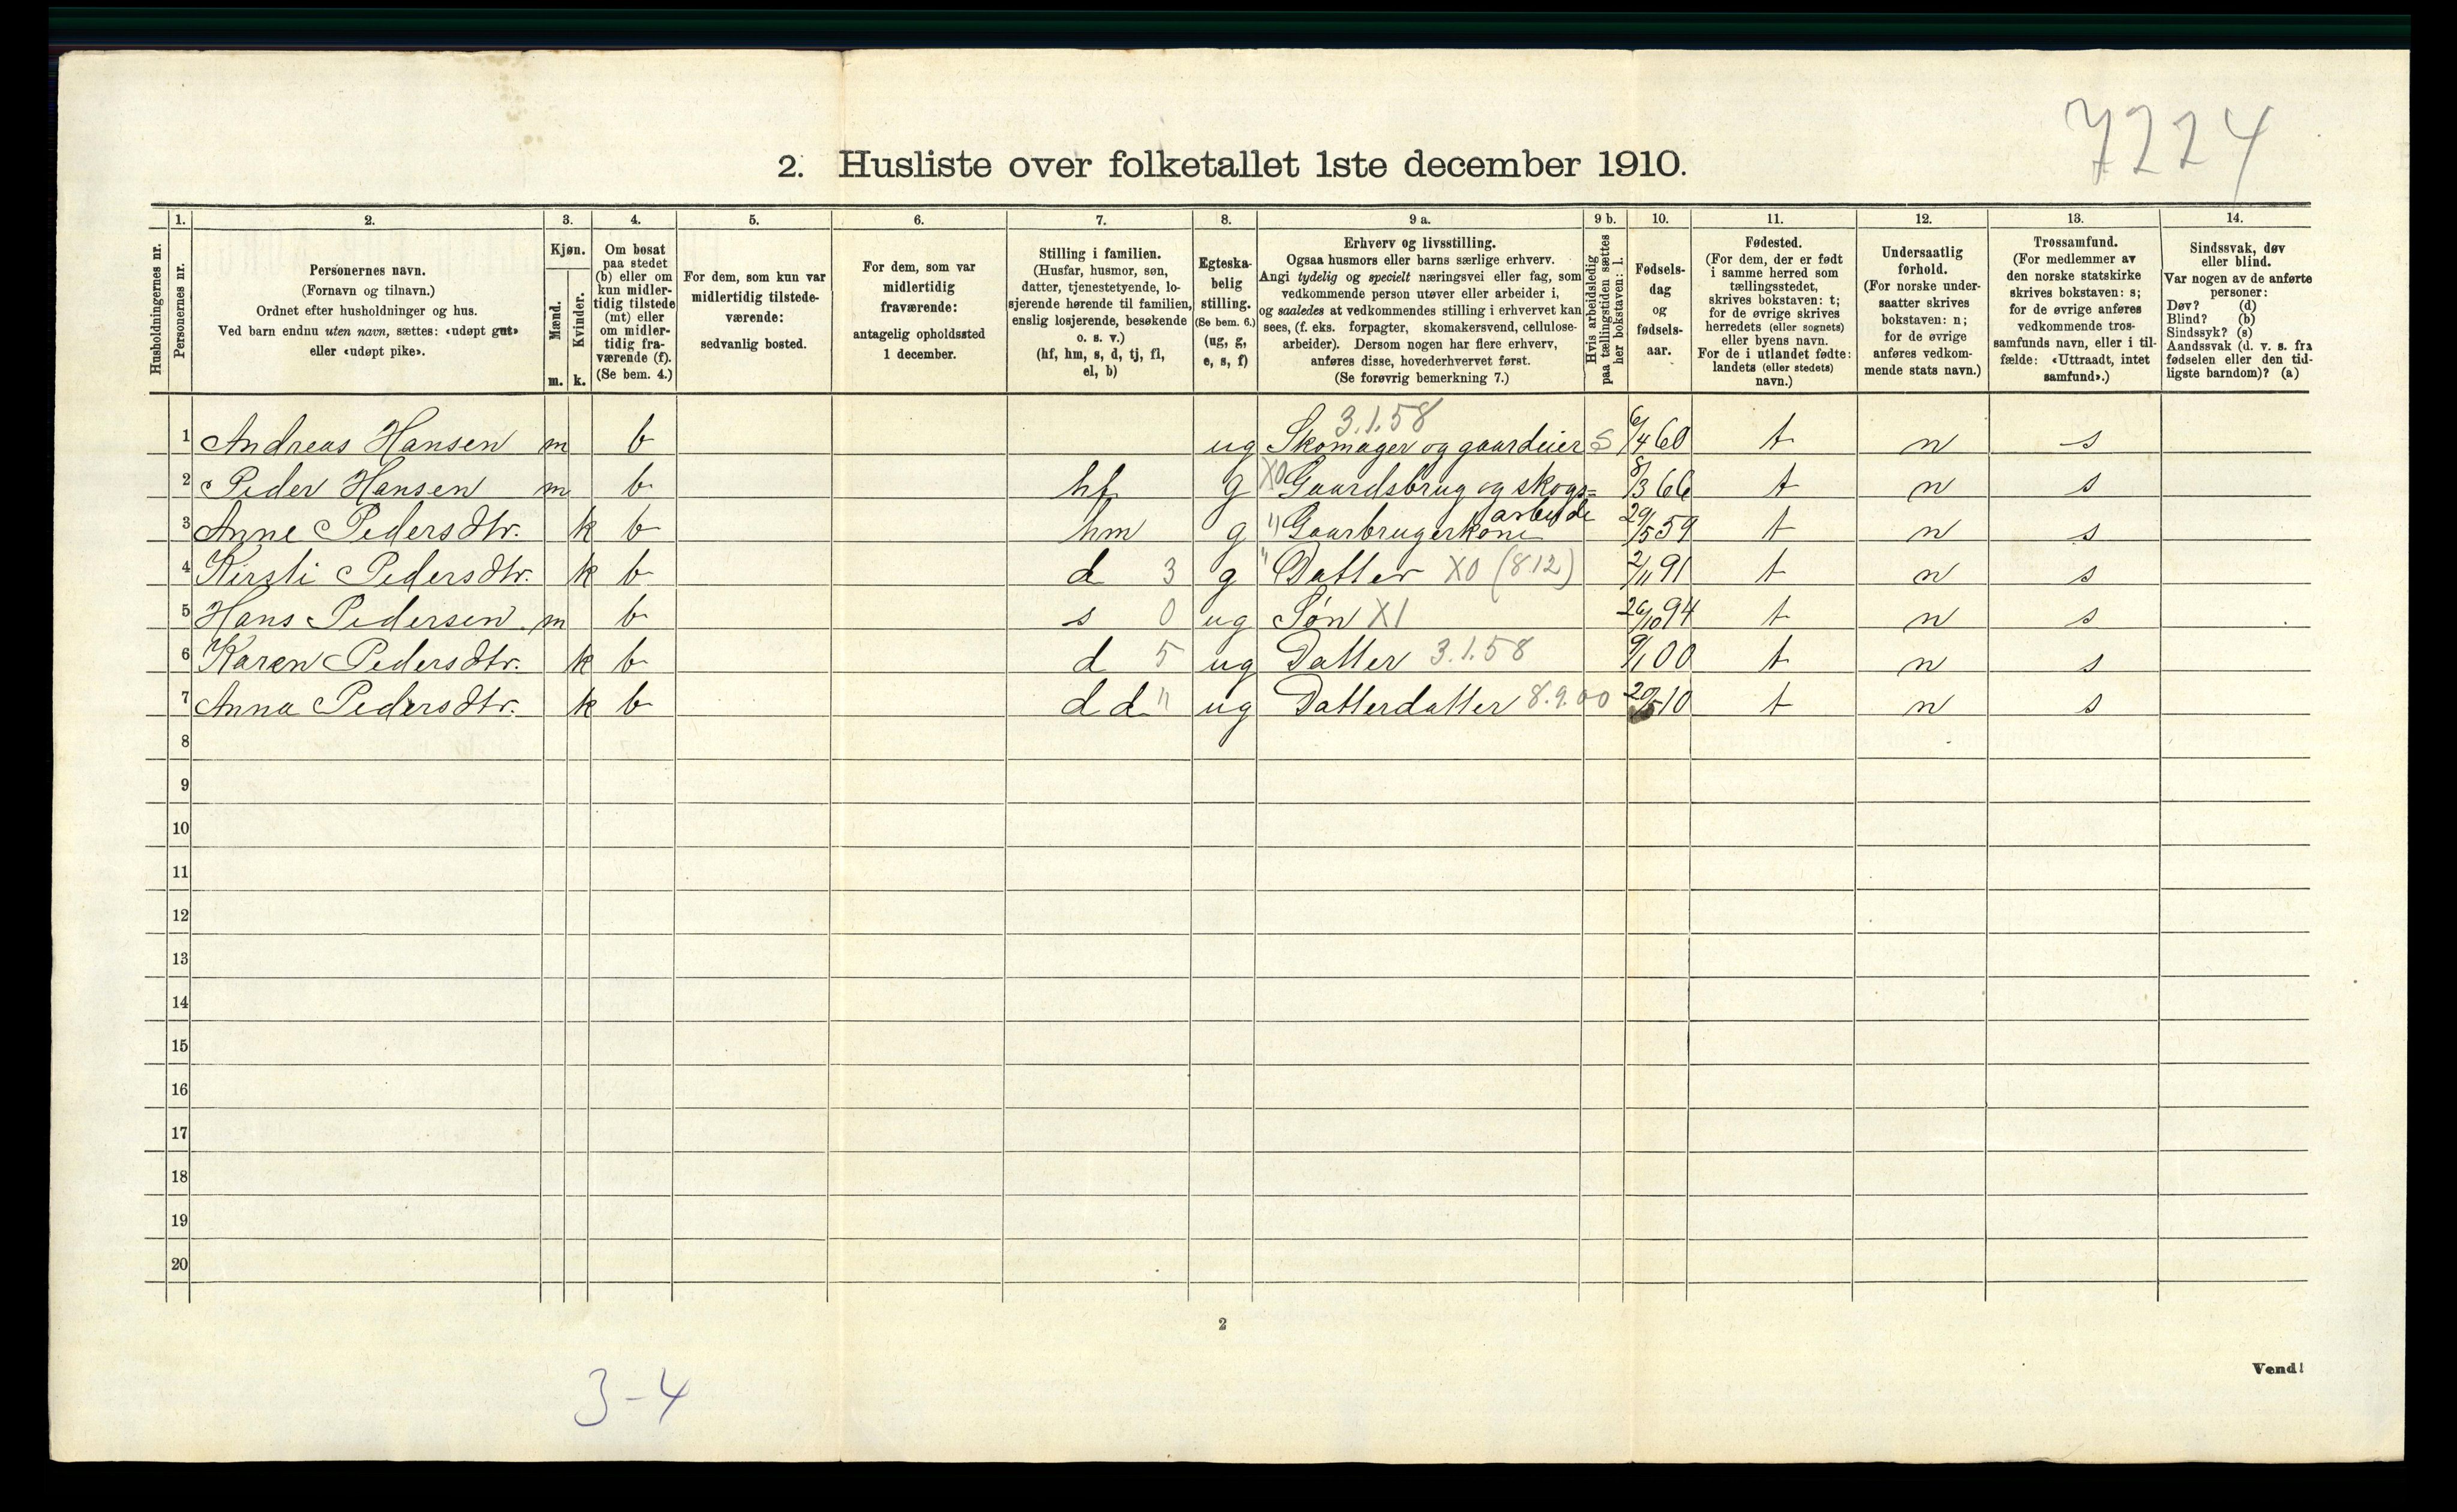 7224
2. Husliste over folketallet 1ste december 1910.
1. 2. 3. 4. 5. 6. 7. 8. 9 a. 9 b. 10. 11. 12. 13. 14.
Husholdningernes nr.
Personernes nr.
Personernes navn.
(Fornavn og tilnavn.)
Ordnet efter husholdninger og hus.
Ved barn endnu uten navn, sættes: «udøpt gut»
eller «udøpt pike».
Kjøn.
Mænd.
Kvinder.
m. k.
Om bosat
paa stedet
(b) eller om
kun midler-
tidig tilstede
(mt) eller
om midler-
tidig fra-
værende (f).
(Se bem. 4.)
For dem, som kun var
midlertidig tilstede-
værende:
sedvanlig bosted.
For dem, som var
midlertidig
fraværende:
antagelig opholdssted
1 december.
Stilling i familien.
(Husfar, husmor, søn,
datter, tjenestetyende, lo-
sjerende hørende til familien,
enslig losjerende, besøkende
o. s. v.)
(hf, hm, s, d, tj, fl,
el, b)
Egteska-
belig
stilling.
(Se bem. 6.)
(ug, g,
e, s, f)
Erhverv og livsstilling.
Ogsaa husmors eller barns særlige erhverv.
Angi tydelig og specielt næringsvei eller fag, som
vedkommende person utøver eller arbeider i,
og saaledes at vedkommendes stilling i erhvervet kan
sees, (f. eks. forpagter, skomakersvend, cellulose-
arbeider). Dersom nogen har flere erhverv,
anføres disse, hovederhvervet først.
(Se forøvrig bemerkning 7.)
Hvis arbeidsledig
paa tællingstiden sættes
her bokstaven: l.
Fødsels-
dag
og
fødsels-
aar.
Fødested.
(For dem, der er født
i samme herred som
tællingsstedet,
skrives bokstaven: t;
for de øvrige skrives
herredets (eller sognets)
eller byens navn.
For de i utlandet fødte:
landets (eller stedets)
navn.)
Undersaatlig
forhold.
(For norske under-
saatter skrives
bokstaven: n;
for de øvrige
anføres vedkom-
mende stats navn.)
Trossamfund.
(For medlemmer av
den norske statskirke
skrives bokstaven: s;
for de øvrige anføres
vedkommende tros-
samfunds navn, eller i til-
fælde: «Uttraadt, intet
samfund».)
Sindssvak, døv
eller blind.
Var nogen av de anførte
personer:
Døv? (d)
Blind? (b)
Sindssyk? (s)
Aandssvak (d. v. s. fra
fødselen eller den tid-
ligste barndom)? (a)
3.1.58
1 Andreas Hansen m b ug Skomager og gaardeier S 6/4 60 t n s
2 Peder Hansen m b hf g X0 Gaardsbrug og skogs=
arbeide 8/3 66 t n s
3 Anne Pedersdtr. k b hm g " Gaarbrugerkone 29/5 59 t n s
4 Kirsti Pedersdtr. k b d 3 g " Datter X0 (812) 2/11 91 t n s
5 Hans Pedersen m b s 0 ug Søn X1 26/10 94 t n s
6 Karen Pedersdtr. k b d 5 ug Datter 3.1.58 9/1 00 t n s
7 Anna Pedersdtr. k b d d " ug Datterdatter 8.9.00 20/5 10 t n s
8
9
10
11
12
13
14
15
16
17
18
19
20
2
Vend!
3-4